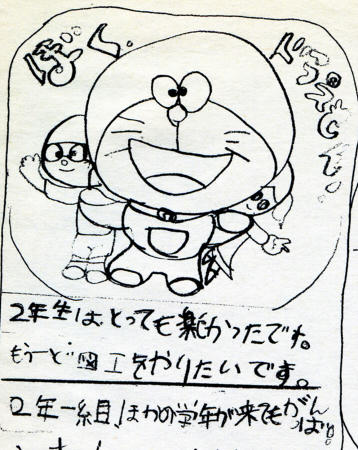 ぼく
ドラえもん
2年生はとっても楽かったです。
もう一ど図工をやりたいです。
2年一組目、ほかの学年が来てもがん